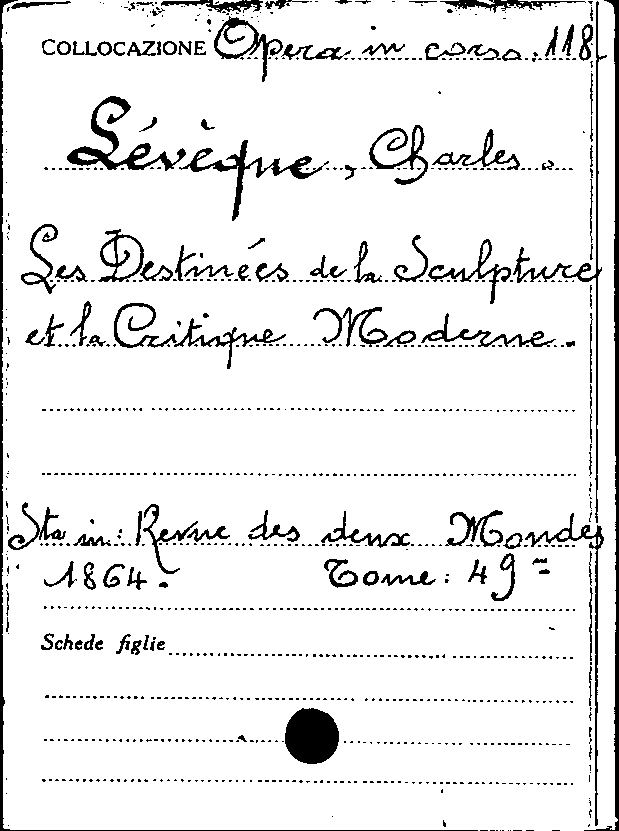 COLLOCAZIONE Opera in corso. 118.
Lévèque, Charles.
Les Destinées de la Sculpture
et la Critique Moderne.
Sta in: Revue des deux Mondes
1864. Tome: 49=
Schede figlie